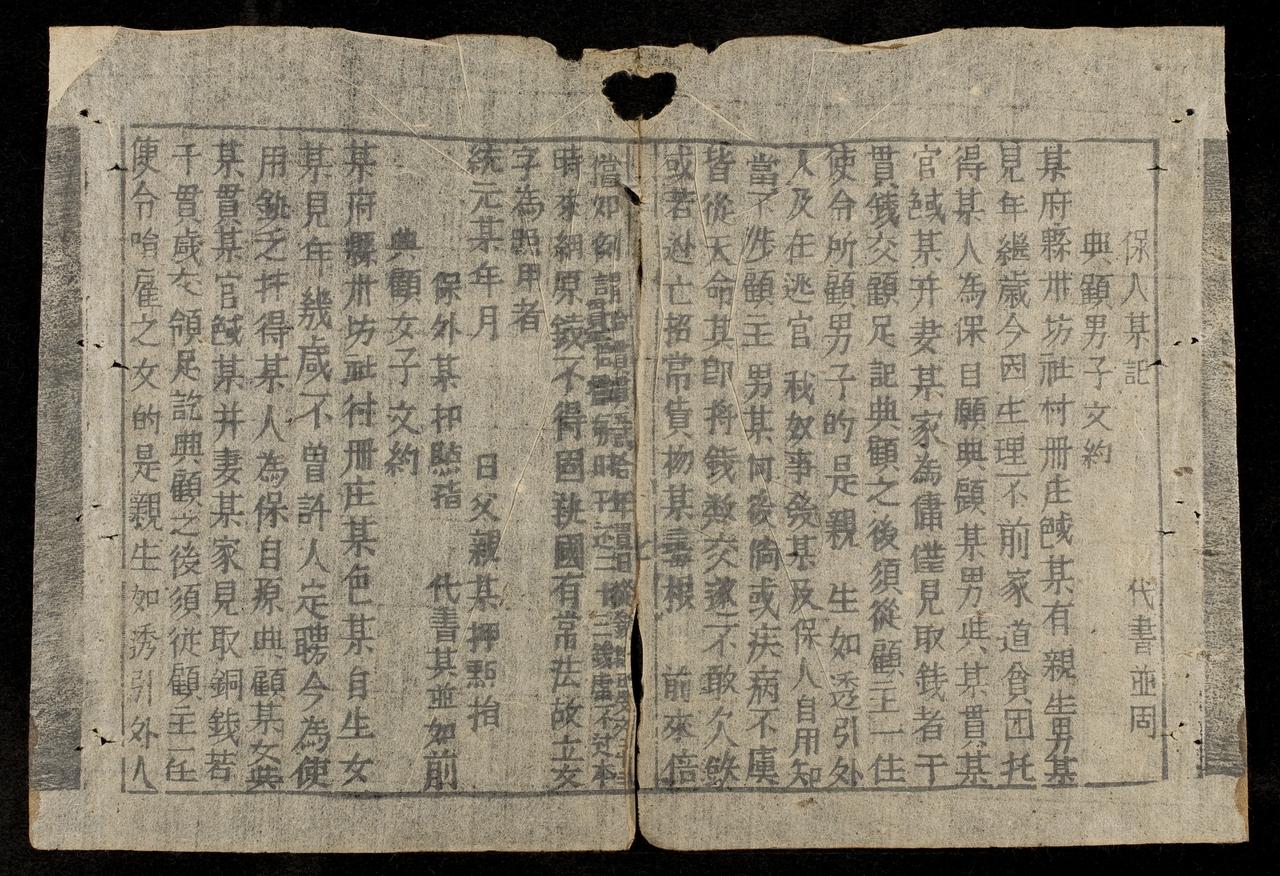 保人某記 代書並同
典顧男子文約
某府縣卅坊社村冊庄某有親生男某
見年継歲今因生理不前家道貧困托
得某人為保自願典顧某男典其貫某
官某并妻某家為傭見取銭者干
貫銭交顧足記典顧之後須從顧王一住
使令所顧男子的是親 生如透引外
人及在逃官 奴事発某及保人自用知
當不渉顧主 男某何後倘或疾病不虞
皆從天命其即将銭数交还不敢欠
或若逃亡招常貟物某 根 前來倍
時來細原錢不得固执國有常法故立文
字為照用者
統元某年月 日父親某押點抬
保外某和點指 代書某並如前
典顧女子文約
某府縣卅坊社村冊庄某色某自生女
某見年幾歲不曽許人定聘今為使
用銭乏并得某人為保自願典顧某女典
某貫某官某并妻某家見取銅銭若
干貫歲交領足訖典顧之後須従顧主一任
使令唯雇之女的是親生如誘引外人